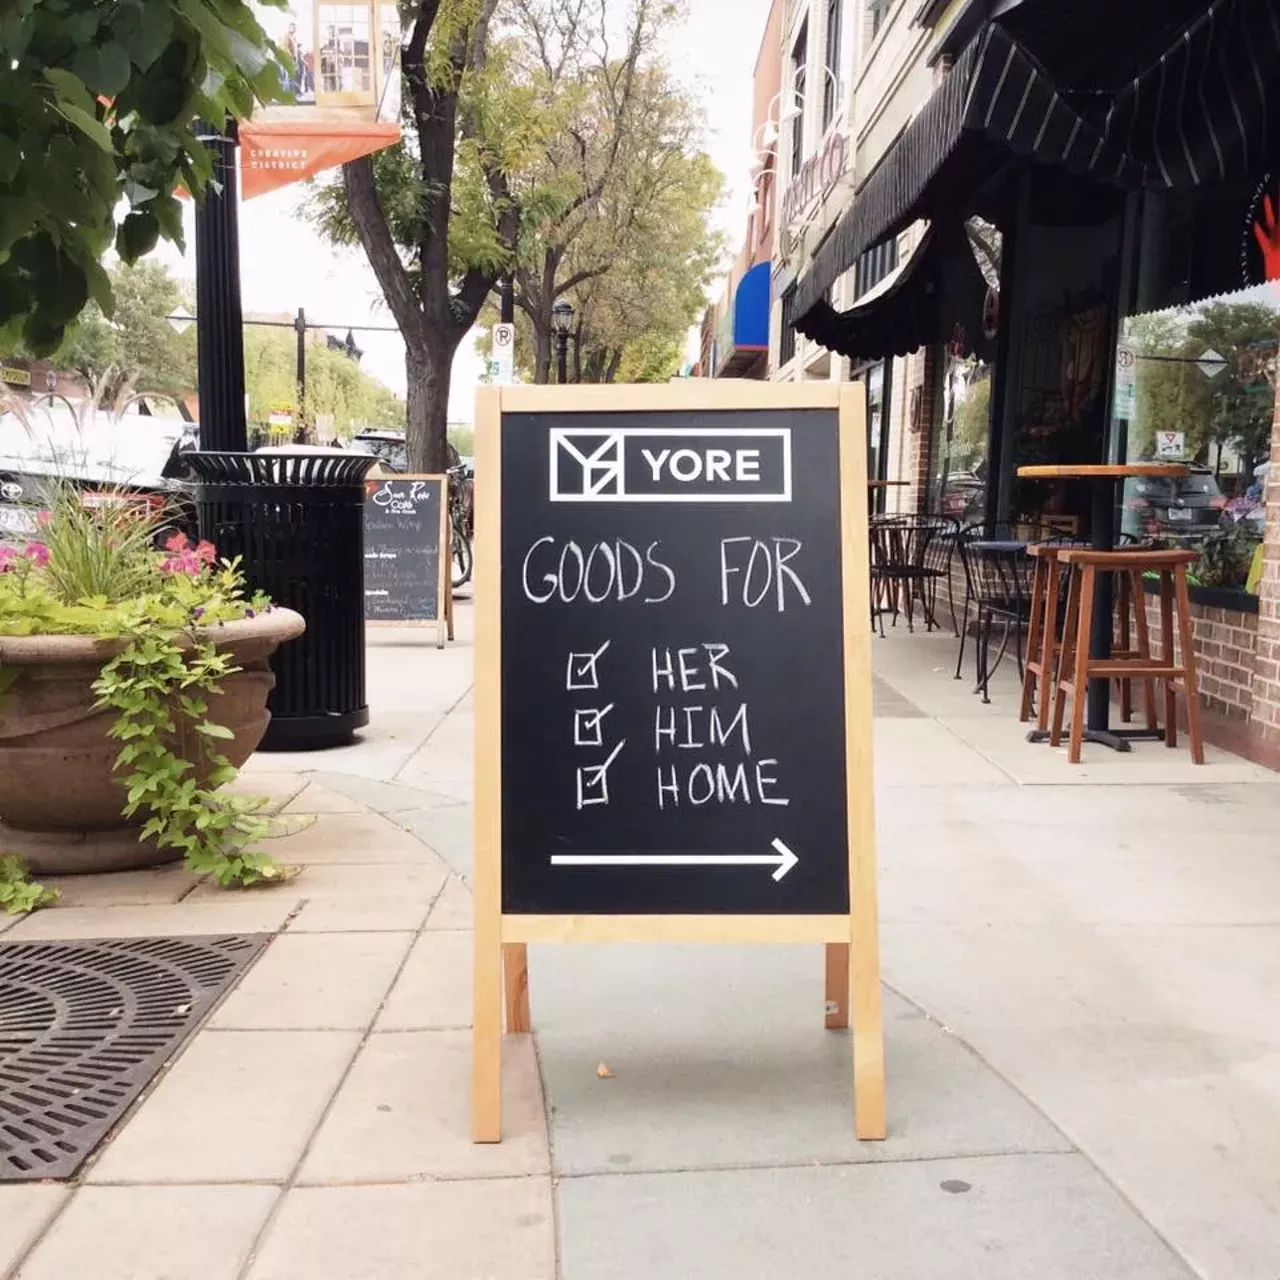 CREATIVE
DISTRICT
YORE
GOODS FOR
HER
HIM
HOME
Sun Rose
Café